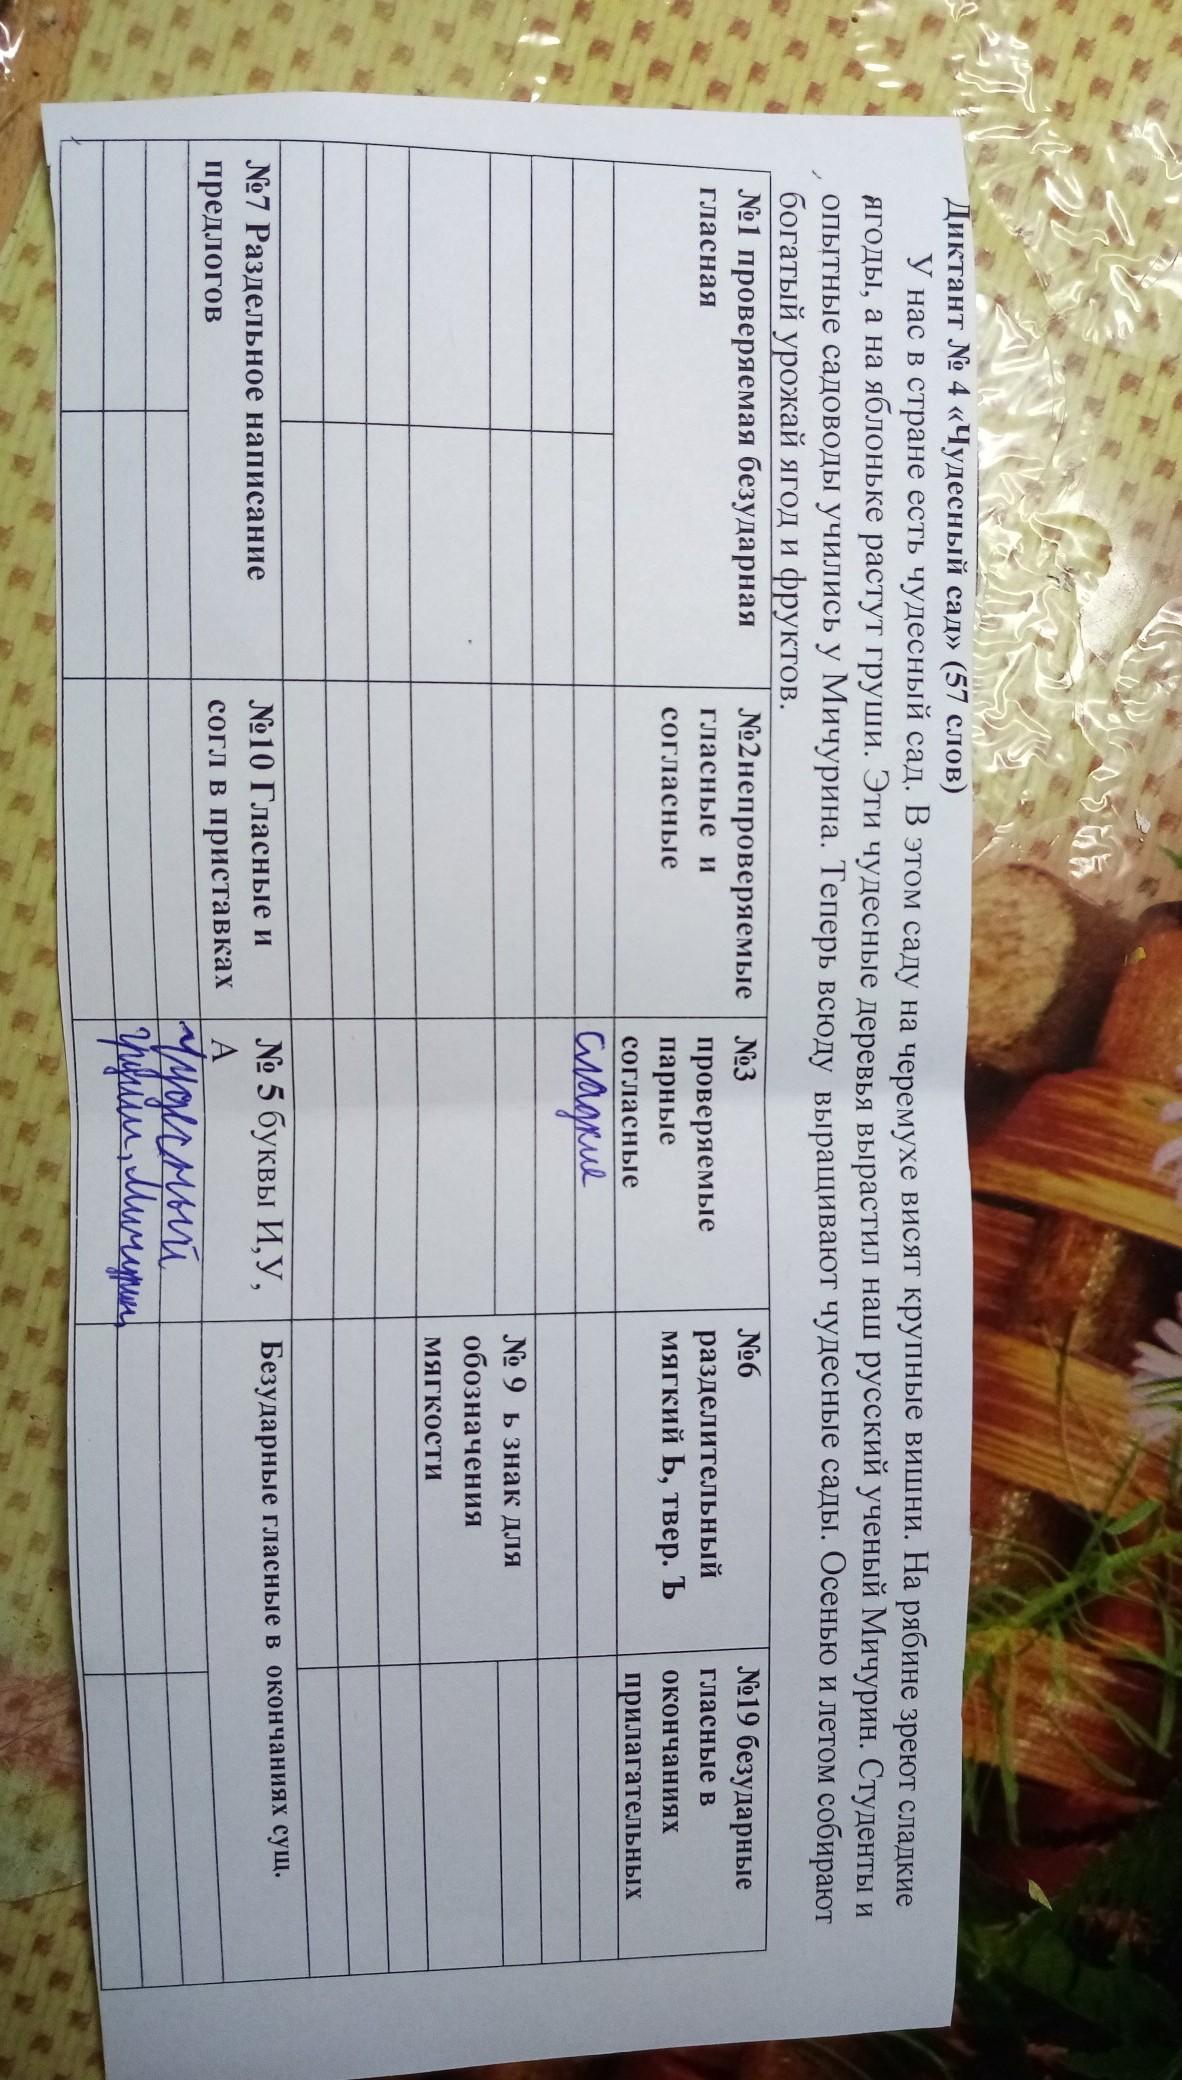 Диктант № 4 «Чудесный сад» (57 слов)
У нас в стране есть чудесный сад. В этом саду на черемухе висят крупные вишни. На рябине зреют сладкие
ягоды, а на яблоньке растут груши. Эти чудесные деревья вырастил наш русский ученый Мичурин. Студенты и
опытные садоводы учились у Мичурина. Теперь всюду выращивают чудесные сады. Осенью и летом собирают
богатый урожай ягод и фруктов.
№1 проверяемая безударная
гласная
№2непроверяемые
гласные и
согласные
№3
проверяемые
парные
согласные
№6
разделительный
мягкий Ь, твер. Ъ
№19 безударные
гласные в
окончаниях
прилагательных
сладкие
№ 9 ь знак для
обозначения
мягкости
№7 Раздельное написание
предлогов
№10 Гласные и
согл в приставках
№ 5 буквы И,У,
А
Безударные гласные в окончаниях сущ.
чудесный
груши, Мичурин,